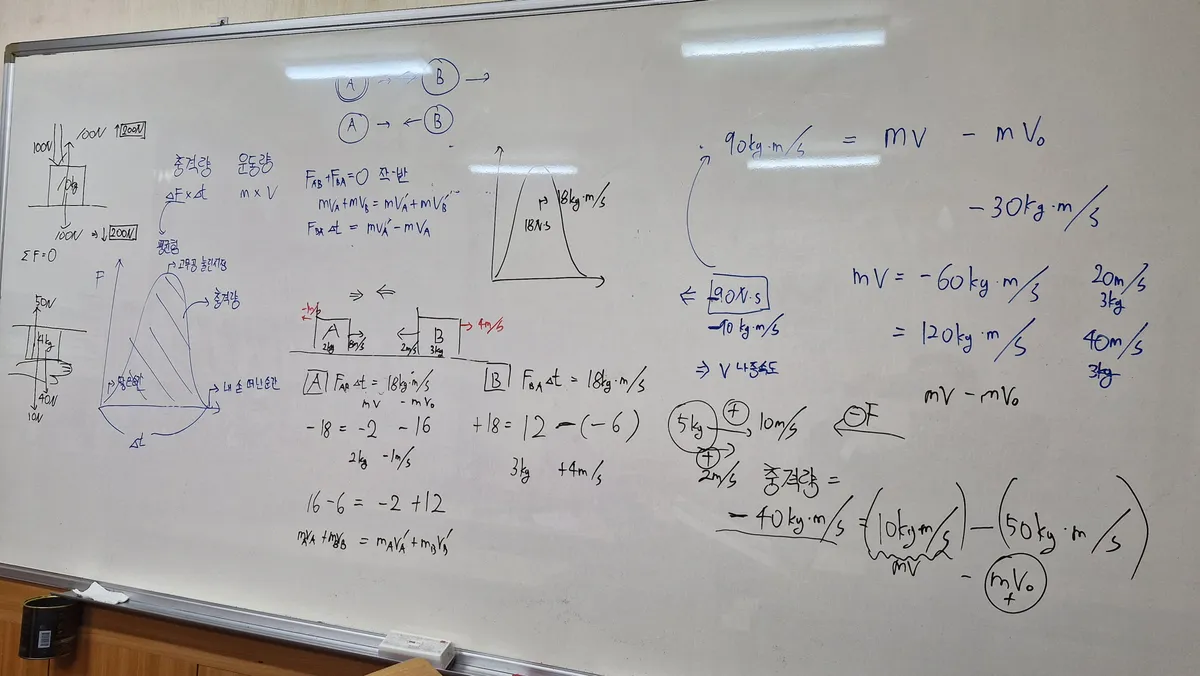 100N
100N ↑ 200N
10kg
100N ⇒ ↓ 200N
ΣF=0
50N
4kg
40N
10N
충격량 운동량
ΔF×Δt m×V
평균힘
F
고무공 눌린시점
충격량
닿은순간
내 손 떠난순간
Δt
A → B →
A → ← B
F_AB+F_BA=0 작-반
mV_A+mV_B = mV_A'+mV_B'
F_BA Δt = mV_A' - mV_A
18kg·m/s
18N·s
⇒ ⇐
-1m/s
A
2kg
8m/s
2m/s
B
3kg
4m/s
A
Δt = 18kg·m/s
mV - mV₀
-18 = -2 -16
2kg -1m/s
B F_BA Δt = 18kg·m/s
+18 = 12 - (-6)
3kg +4m/s
16-6 = -2 +12
m_A V_A + m_B V_B = m_A V_A' + m_B V_B'
90kg·m/s = mV - mV₀
-30kg·m/s
⇐ -90N·s
-90 kg·m/s
⇒ V 나중속도
mV = -60kg·m/s
20m/s
3kg
= 120kg·m/s
40m/s
3kg
mV - mV₀
5kg + 10m/s
⊖F
+
2m/s
충격량 =
-40kg·m/s = (10kg·m/s) - (50kg·m/s)
mV - mV₀
+